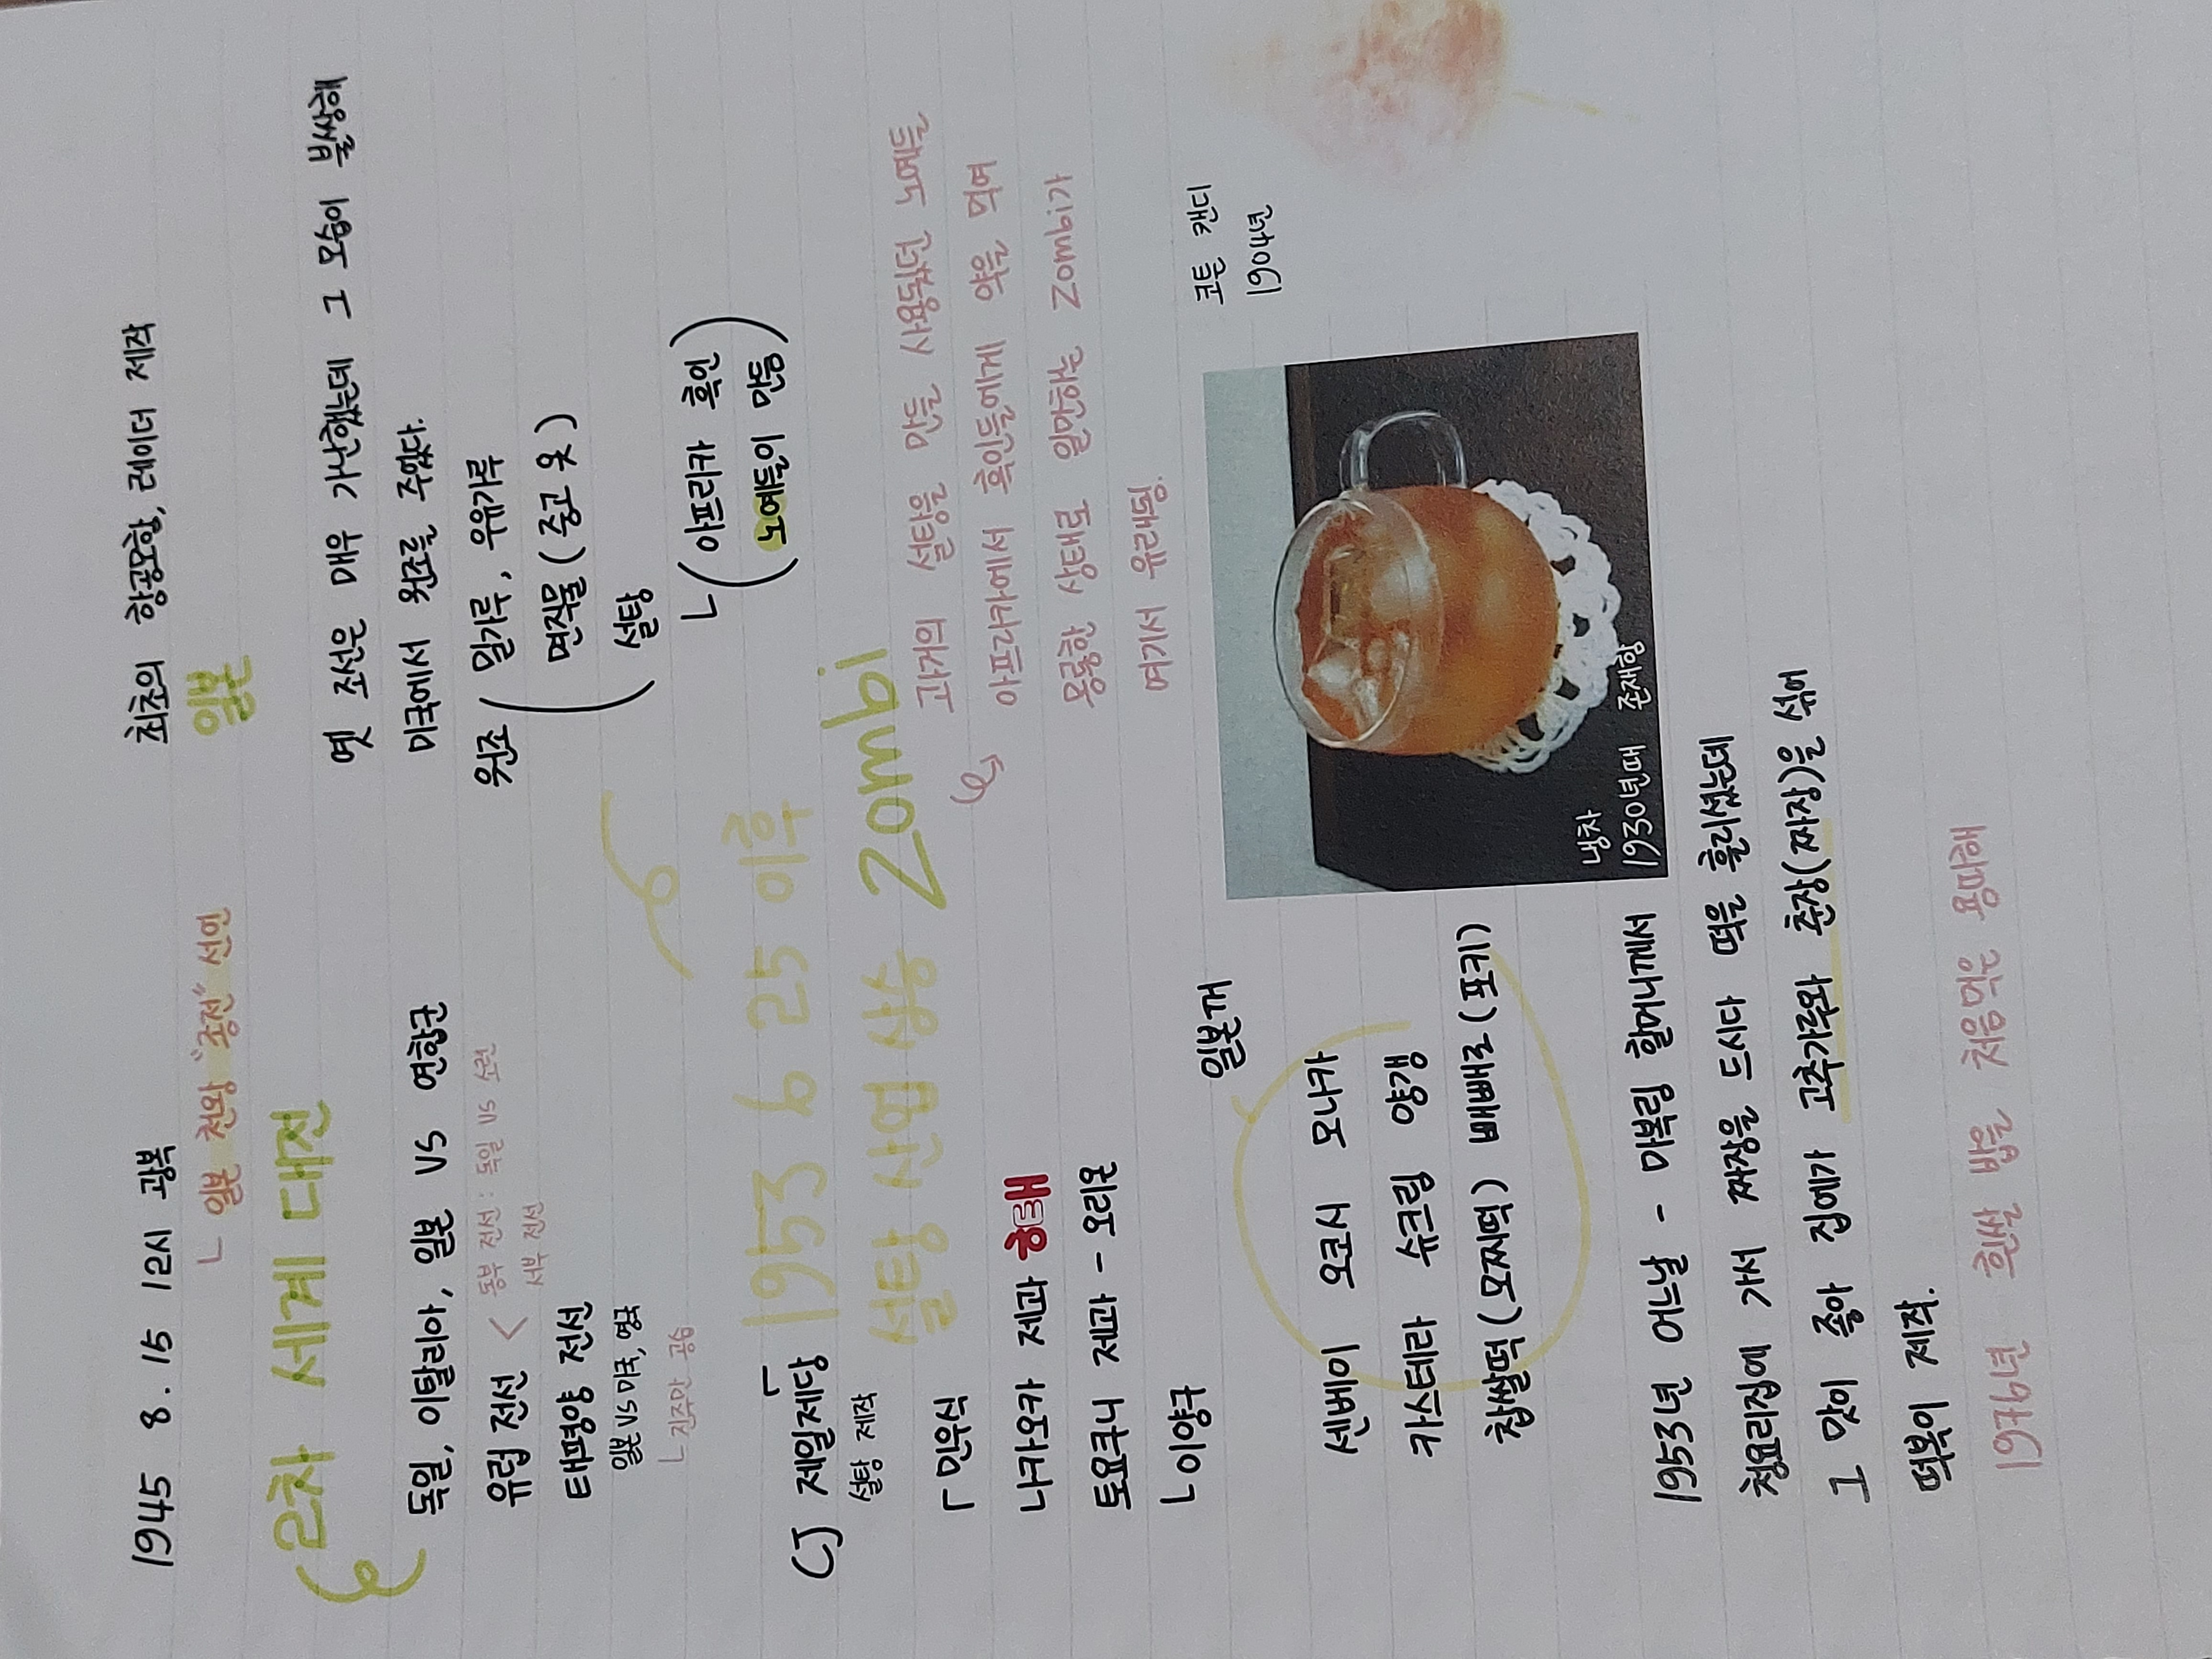 1945 8. 15 12시 광복
ㄴ 일본 천왕 "종전" 선언
2차 세계 대전
독일, 이탈리아, 일본 VS 연합군
유럽 전선 < 동부 전선 : 독일 VS 소련
서부 전선
태평양 전선
일본 VS 미국, 영국
ㄴ 진주만 공습
최초의 항공모함, 레이더 제작
일본
옛 조선은 매우 가난했는데 그 모습이 불쌍해
미국에서 원조를 주었다.
원조 ( 밀가루, 우유가루
면직물 (중고 옷)
설탕
ㄴ (아프리카 흑인
노예들이 만듦)
1953 6 25 이후
CJ 제일제당
설탕 제작
설탕 산업 상승 Zombi
과거의 설탕을 만들 사용됐던 노예들
아프리카에서 흑인들에게 약을 먹여
몽롱한 상태로 일만하는 Zombi가
여기서 유래됨.
「 민우식
나카오카 제과 해태
토요쿠니 제과 - 오리온
ㄴ 이양구
일본개
센베이 오코시 모나카
카스테라 슈크림 양갱
찹쌀떡 (모찌떡) 빼빼로 (포키)
코튼 캔디
1904년
냉차
1930년대 존재함
1953년 어느날 - 마복림 할머니께서
청요리집에 가서 짜장을 드시다 떡을 흘리셨는데
그 맛이 좋아 집에가 고추가루와 춘장(짜장)을 섞어
떡볶이 제작.
1976년 흰쌀 밥을 처음먹은 용따해